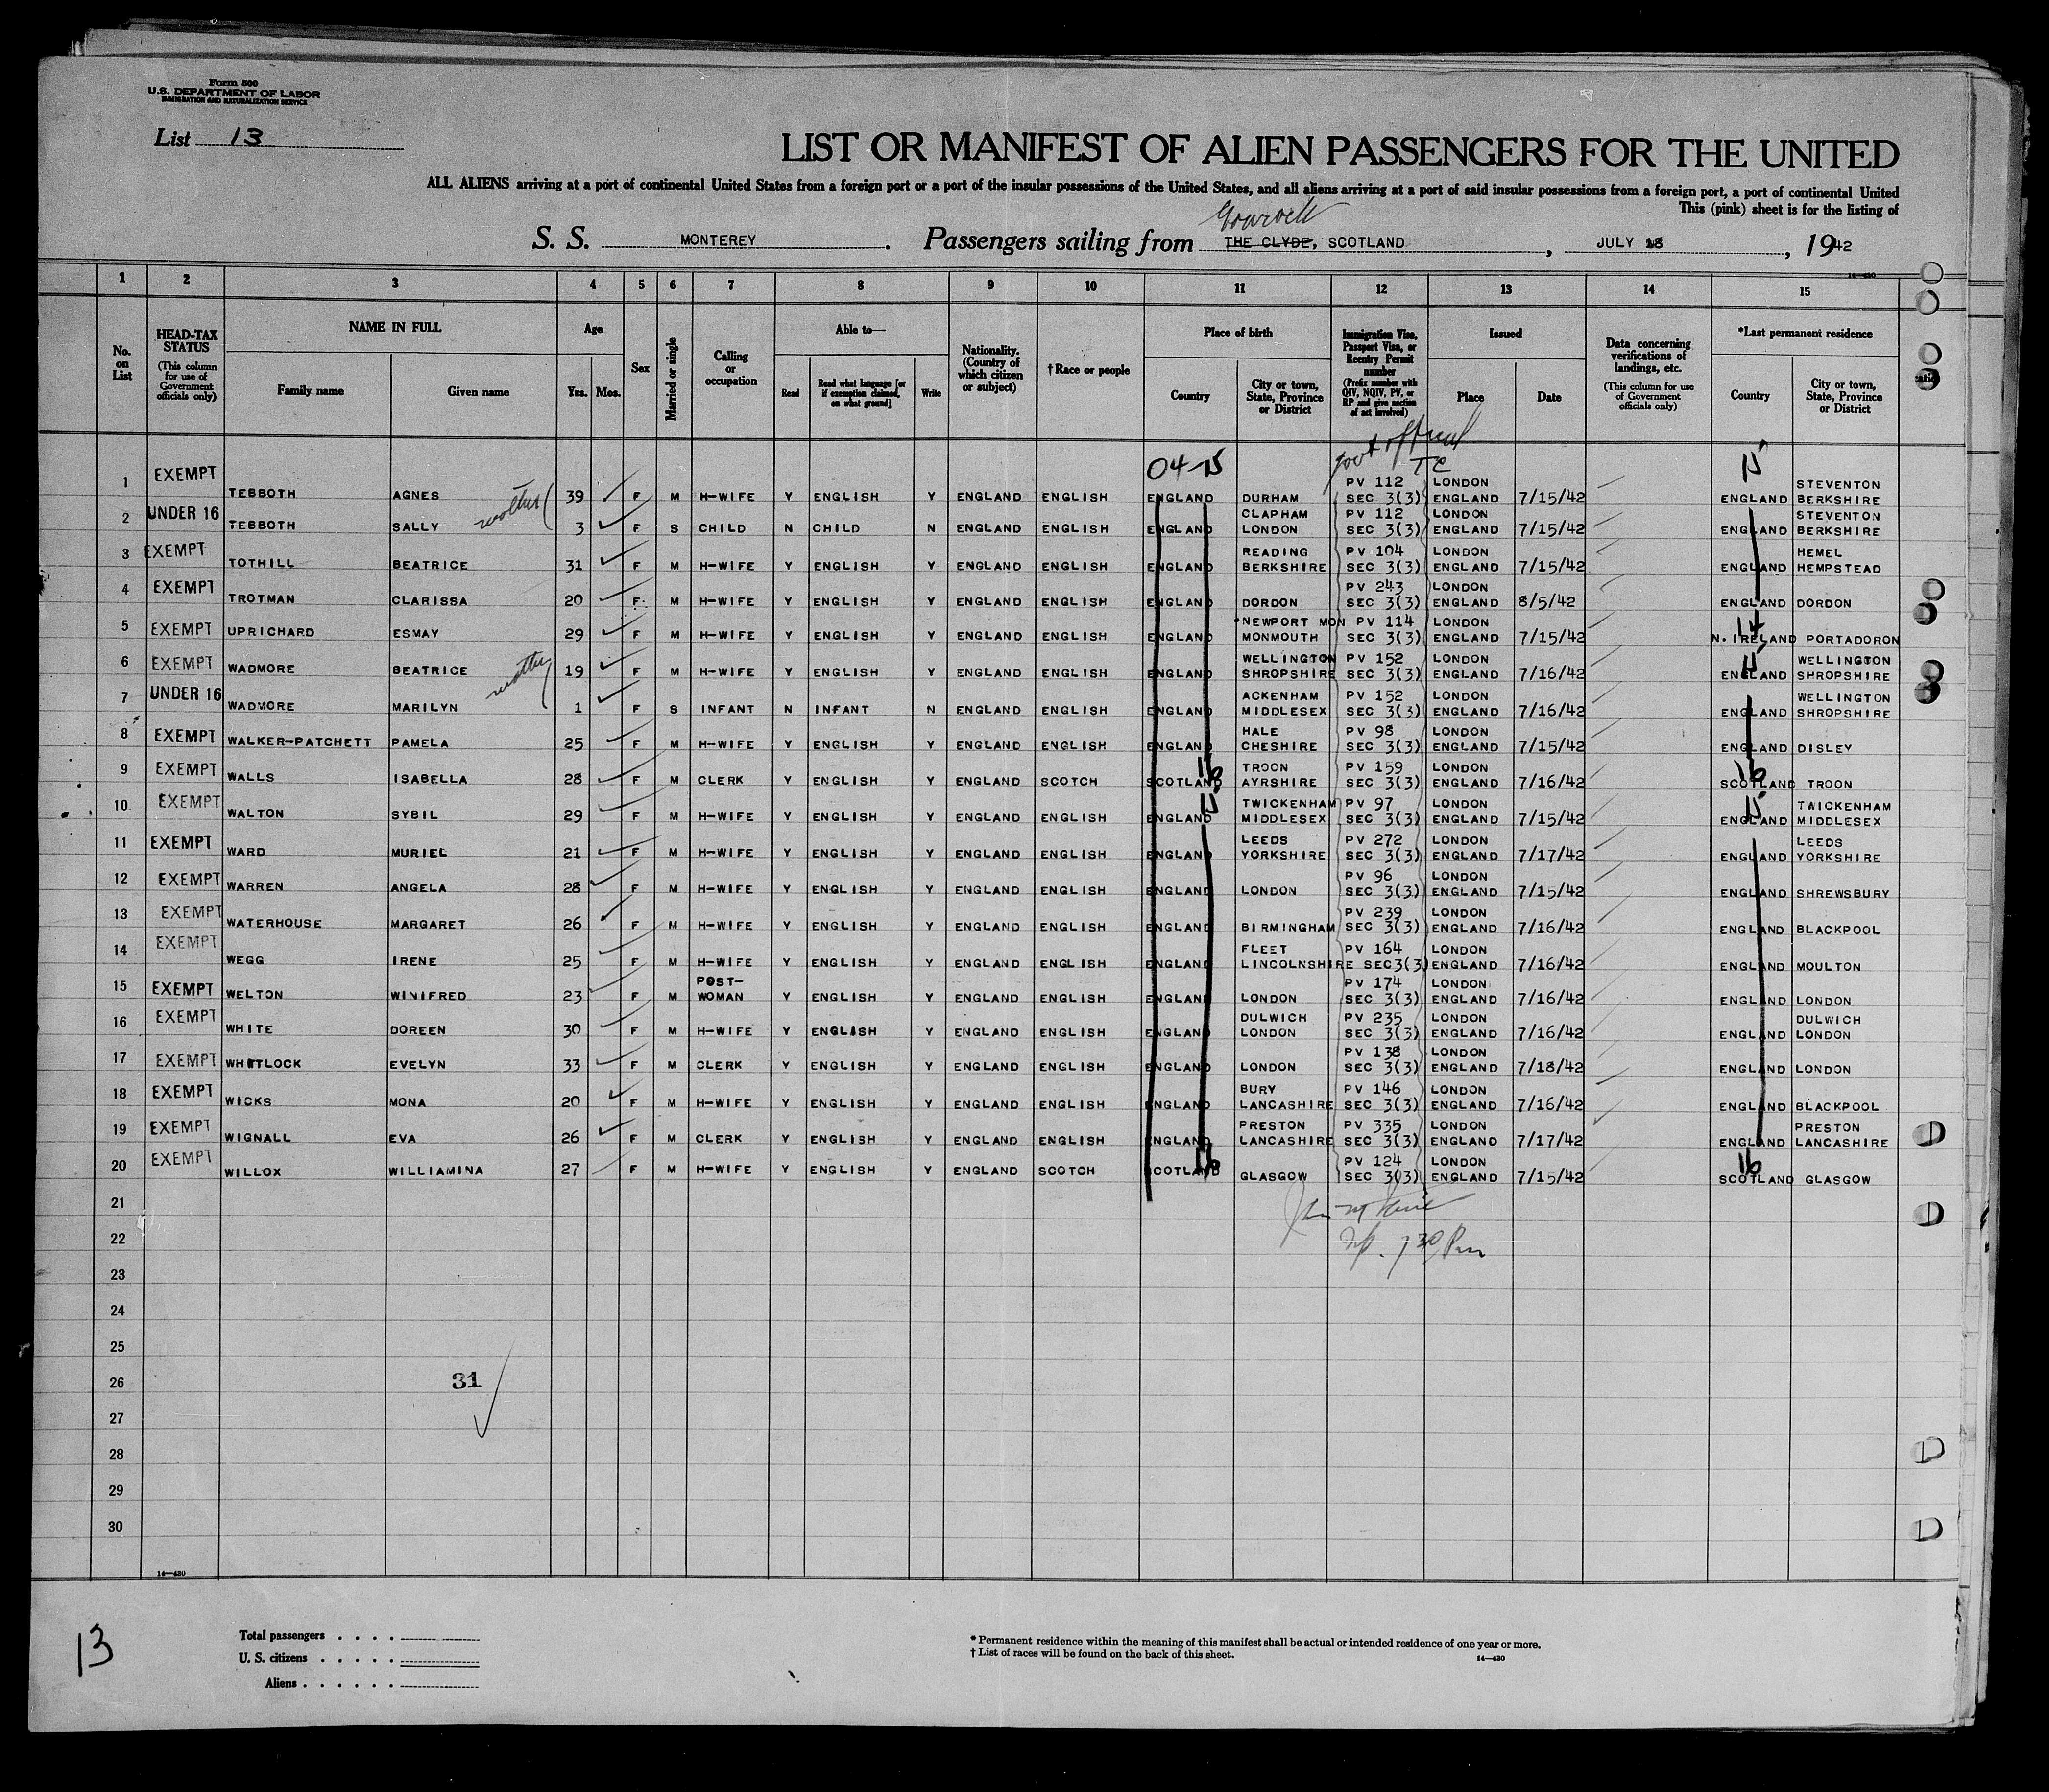 Form 500
U.S. DEPARTMENT OF LABOR
IMMIGRATION AND NATURALIZATION SERVICE
List 13
LIST OR MANIFEST OF ALIEN PASSENGERS FOR THE UNITED
ALL ALIENS arriving at a port of continental United States from a foreign port or a port of the insular possessions of the United States, and all aliens arriving at a port of said insular possessions from a foreign port, a port of continental United
This (pink) sheet is for the listing of
Gourock
S. S. MONTEREY. Passengers sailing from THE CLYDE, SCOTLAND, JULY 18, 1942
14—430
1 2 3 4 5 6 7 8 9 10 11 12 13 14 15
No. on List
HEAD-TAX STATUS (This column for use of Government officials only)
NAME IN FULL
Family name Given name
Age
Yrs. Mos.
Sex
Married or single
Calling or occupation
Able to—
Read Read what language [or if exemption claimed, on what ground] Write
Nationality. (Country of which citizen or subject)
†Race or people
Place of birth
Country City or town, State, Province or District
Immigration Visa, Passport Visa, or Reentry Permit number (Prefix number with QIV, NQIV, PV, or RP and give section of act involved)
Issued
Place Date
Data concerning verifications of landings, etc. (This column for use of Government officials only)
*Last permanent residence
Country City or town, State, Province or District
Govt official
04-15 TC 15
1 EXEMPT TEBBOTH AGNES mother 39 F M H-WIFE Y ENGLISH Y ENGLAND ENGLISH ENGLAND DURHAM PV 112 SEC 3(3) LONDON ENGLAND 7/15/42 ENGLAND STEVENTON BERKSHIRE
2 UNDER 16 TEBBOTH SALLY 3 F S CHILD N CHILD N ENGLAND ENGLISH ENGLAND CLAPHAM LONDON PV 112 SEC 3(3) LONDON ENGLAND 7/15/42 ENGLAND STEVENTON BERKSHIRE
3 EXEMPT TOTHILL BEATRICE 31 F M H-WIFE Y ENGLISH Y ENGLAND ENGLISH ENGLAND READING BERKSHIRE PV 104 SEC 3(3) LONDON ENGLAND 7/15/42 ENGLAND HEMEL HEMPSTEAD
4 EXEMPT TROTMAN CLARISSA 20 F M H-WIFE Y ENGLISH Y ENGLAND ENGLISH ENGLAND DORDON PV 243 SEC 3(3) LONDON ENGLAND 8/5/42 ENGLAND DORDON
5 EXEMPT UPRICHARD ESMAY 29 F M H-WIFE Y ENGLISH Y ENGLAND ENGLISH ENGLAND NEWPORT MON MONMOUTH PV 114 SEC 3(3) LONDON ENGLAND 7/15/42 14 N. IRELAND PORTADORON
6 EXEMPT WADMORE BEATRICE mother 19 F M H-WIFE Y ENGLISH Y ENGLAND ENGLISH ENGLAND WELLINGTON SHROPSHIRE PV 152 SEC 3(3) LONDON ENGLAND 7/16/42 15 ENGLAND WELLINGTON SHROPSHIRE
7 UNDER 16 WADMORE MARILYN 1 F S INFANT N INFANT N ENGLAND ENGLISH ENGLAND ACKENHAM MIDDLESEX PV 152 SEC 3(3) LONDON ENGLAND 7/16/42 ENGLAND WELLINGTON SHROPSHIRE
8 EXEMPT WALKER-PATCHETT PAMELA 25 F M H-WIFE Y ENGLISH Y ENGLAND ENGLISH ENGLAND HALE CHESHIRE PV 98 SEC 3(3) LONDON ENGLAND 7/15/42 ENGLAND DISLEY
9 EXEMPT WALLS ISABELLA 28 F M CLERK Y ENGLISH Y ENGLAND SCOTCH 16 SCOTLAND TROON AYRSHIRE PV 159 SEC 3(3) LONDON ENGLAND 7/16/42 16 SCOTLAND TROON
10 EXEMPT WALTON SYBIL 29 F M H-WIFE Y ENGLISH Y ENGLAND ENGLISH 15 ENGLAND TWICKENHAM MIDDLESEX PV 97 SEC 3(3) LONDON ENGLAND 7/15/42 15 ENGLAND TWICKENHAM MIDDLESEX
11 EXEMPT WARD MURIEL 21 F M H-WIFE Y ENGLISH Y ENGLAND ENGLISH ENGLAND LEEDS YORKSHIRE PV 272 SEC 3(3) LONDON ENGLAND 7/17/42 ENGLAND LEEDS YORKSHIRE
12 EXEMPT WARREN ANGELA 28 F M H-WIFE Y ENGLISH Y ENGLAND ENGLISH ENGLAND LONDON PV 96 SEC 3(3) LONDON ENGLAND 7/15/42 ENGLAND SHREWSBURY
13 EXEMPT WATERHOUSE MARGARET 26 F M H-WIFE Y ENGLISH Y ENGLAND ENGLISH ENGLAND BIRMINGHAM PV 239 SEC 3(3) LONDON ENGLAND 7/16/42 ENGLAND BLACKPOOL
14 EXEMPT WEGG IRENE 25 F M H-WIFE Y ENGLISH Y ENGLAND ENGLISH ENGLAND FLEET LINCOLNSHIRE PV 164 SEC3(3) LONDON ENGLAND 7/16/42 ENGLAND MOULTON
15 EXEMPT WELTON WINIFRED 23 F M POST-WOMAN Y ENGLISH Y ENGLAND ENGLISH ENGLAND LONDON PV 174 SEC 3(3) LONDON ENGLAND 7/16/42 ENGLAND LONDON
16 EXEMPT WHITE DOREEN 30 F M H-WIFE Y ENGLISH Y ENGLAND ENGLISH ENGLAND DULWICH LONDON PV 235 SEC 3(3) LONDON ENGLAND 7/16/42 ENGLAND DULWICH LONDON
17 EXEMPT WHITLOCK EVELYN 33 F M CLERK Y ENGLISH Y ENGLAND ENGLISH ENGLAND LONDON PV 138 SEC 3(3) LONDON ENGLAND 7/18/42 ENGLAND LONDON
18 EXEMPT WICKS MONA 20 F M H-WIFE Y ENGLISH Y ENGLAND ENGLISH ENGLAND BURY LANCASHIRE PV 146 SEC 3(3) LONDON ENGLAND 7/16/42 ENGLAND BLACKPOOL
19 EXEMPT WIGNALL EVA 26 F M CLERK Y ENGLISH Y ENGLAND ENGLISH ENGLAND PRESTON LANCASHIRE PV 335 SEC 3(3) LONDON ENGLAND 7/17/42 ENGLAND PRESTON LANCASHIRE
20 EXEMPT WILLOX WILLIAMINA 27 F M H-WIFE Y ENGLISH Y ENGLAND SCOTCH 16 SCOTLAND GLASGOW PV 124 SEC 3(3) LONDON ENGLAND 7/15/42 16 SCOTLAND GLASGOW
21
22
23
24
25
26 31
27
28
29
30
14—430
13
Total passengers
U. S. citizens
Aliens
* Permanent residence within the meaning of this manifest shall be actual or intended residence of one year or more.
† List of races will be found on the back of this sheet.
14—430